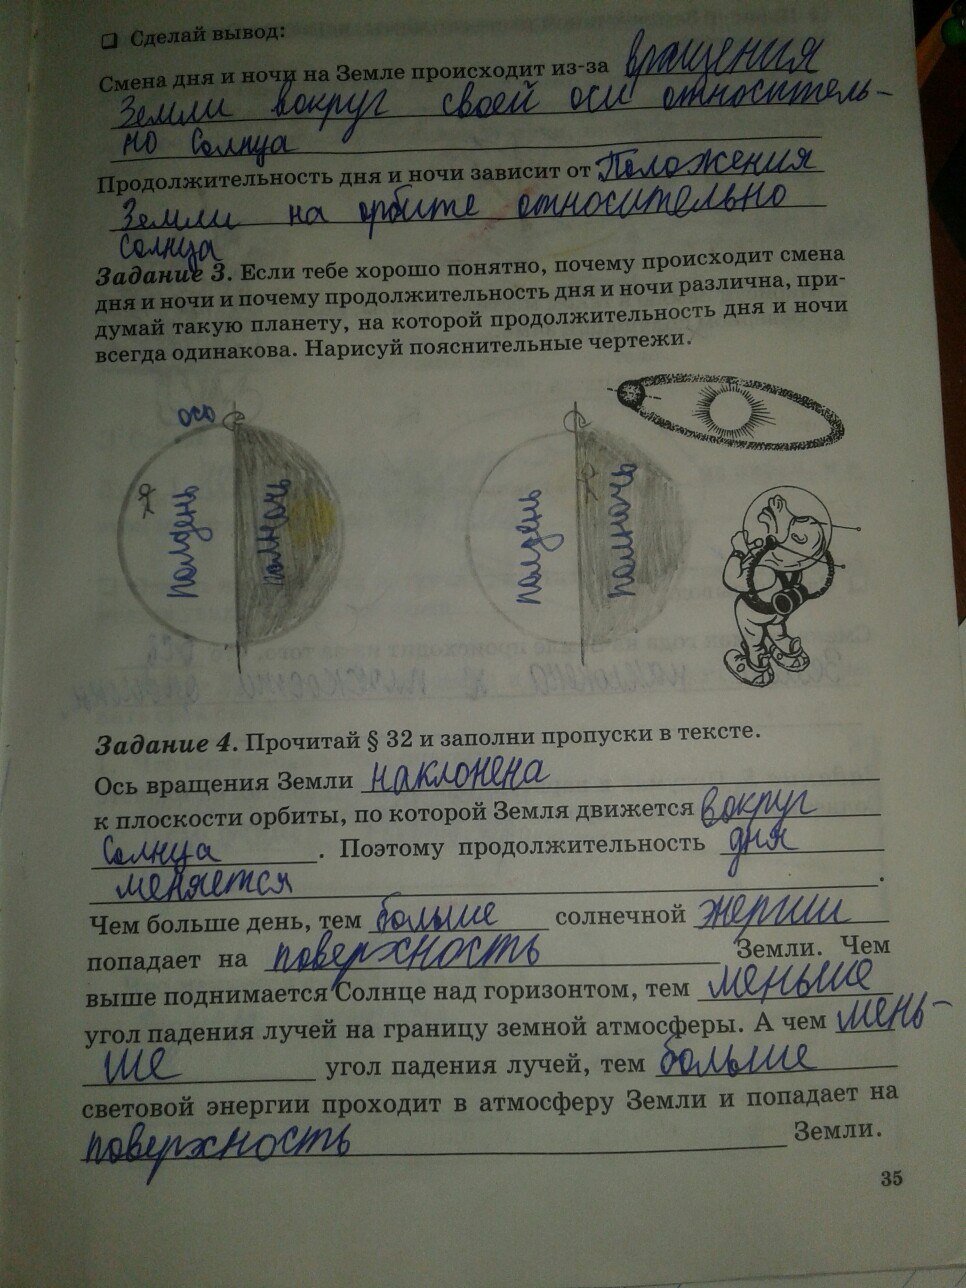 ❑ Сделай вывод:
Смена дня и ночи на Земле происходит из-за вращения
Земли вокруг своей оси относитель-
но Солнца
Продолжительность дня и ночи зависит от Положения
Земли на орбите относительно
Солнца
Задание 3. Если тебе хорошо понятно, почему происходит смена
дня и ночи и почему продолжительность дня и ночи различна, при-
думай такую планету, на которой продолжительность дня и ночи
всегда одинакова. Нарисуй пояснительные чертежи.
ось
полдень
полночь
полдень
полночь
Задание 4. Прочитай § 32 и заполни пропуски в тексте.
Ось вращения Земли наклонена
к плоскости орбиты, по которой Земля движется вокруг
Солнца. Поэтому продолжительность дня
меняется.
Чем больше день, тем больше солнечной энергии
попадает на поверхность Земли. Чем
выше поднимается Солнце над горизонтом, тем меньше
угол падения лучей на границу земной атмосферы. А чем мень-
ше угол падения лучей, тем больше
световой энергии проходит в атмосферу Земли и попадает на
поверхность Земли.
35